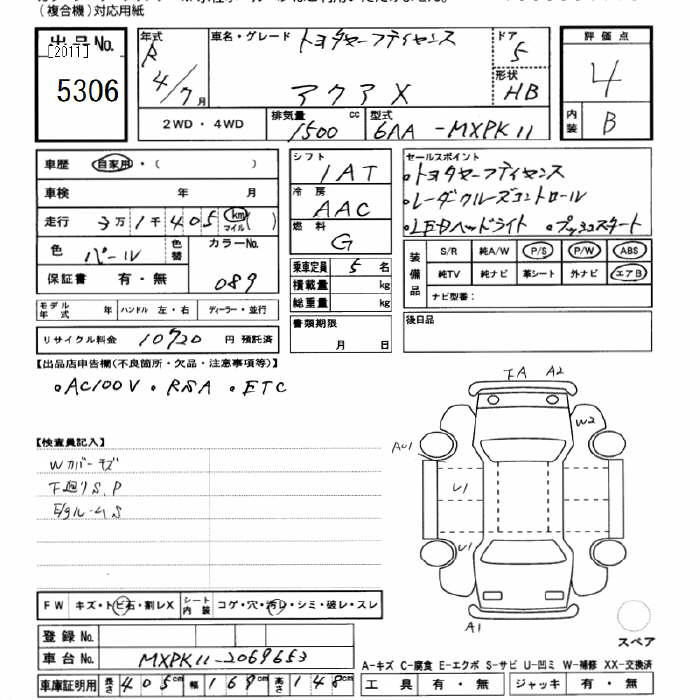 (複合機)対応用紙
出品No.
[2011]
5306
年式
R
4/7月
車名・グレード
トヨタセーフティセンス
アクア X
ドア
5
形状
HB
2WD・4WD
排気量 1500 cc
型式 6AA-MXPK11
評価点
4
内装 B
車歴 自家用・( )
車検 年 月
走行 3万1千405 km マイル ( )
色 パール 色替 カラーNo. 089
保証書 有・無
モデル年式 年 ハンドル 左・右 ディーラー・並行
リサイクル料金 10920 円 預託済
シフト
IAT
冷房
AAC
燃料
G
乗車定員 5 名
積載量 kg
総重量 kg
書類期限
月 日
セールスポイント
・トヨタセーフティセンス
・レーダクルーズコントロール
・LEDヘッドライト ・プッシュスタート
装備品
S/R 純A/W P/S P/W ABS
純TV 純ナビ 革シート 外ナビ エアB
ナビ型番:
後日品
【出品店申告欄(不良箇所・欠品・注意事項等)】
・AC100V ・RSA ・ETC
【検査員記入】
Wカバーキズ
下廻りS,P
E/gルームS
FA A2
W2
AU1
U1
U1
A1
スペア
FW キズ・トビ石・割レX
シート内装 コゲ・穴・汚レ・シミ・破レ・スレ
登録No.
車台No. MXPK11-2069653
車庫証明用 長さ 405cm 幅 169cm 高さ 148cm
A-キズ C-腐食 E-エクボ S-サビ U-凹ミ W-補修 XX-交換済
工具 有・無 ジャッキ 有・無